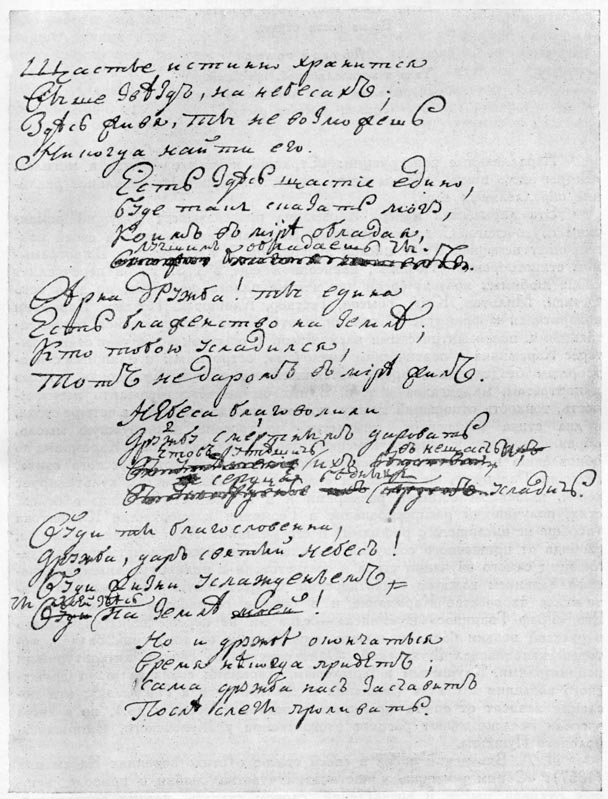 Щастье истинно хранится
Выше звѣздъ, на небесахъ;
Здѣсь живя, ты не возможешь
Никогда найти его.
Есть здѣсь щастіе едино,
Буде такъ сказать могу,
Коимъ въ мірѣ обладая,
Лучшимъ обладаешь ты.
Вѣрна дружба! ты едина
Есть блаженство на землѣ;
Кто тобою усладился,
Тотъ недаромъ въ мірѣ жилъ.
Небеса благоволили
Дружбу смертнымъ даровать
Чтобъ утѣшить ихъ въ нещастьи,
сердца бѣдныхъ усладить.
Буди ты благословенна,
Дружба, даръ святый небесъ!
Буди жизни услажденьемъ
ты моей здѣсь
Буди на землѣ моей!
Но и дружбѣ окончаться
Время нѣкогда придетъ;
Сама дружба насъ заставитъ
Послѣ слезы проливать.